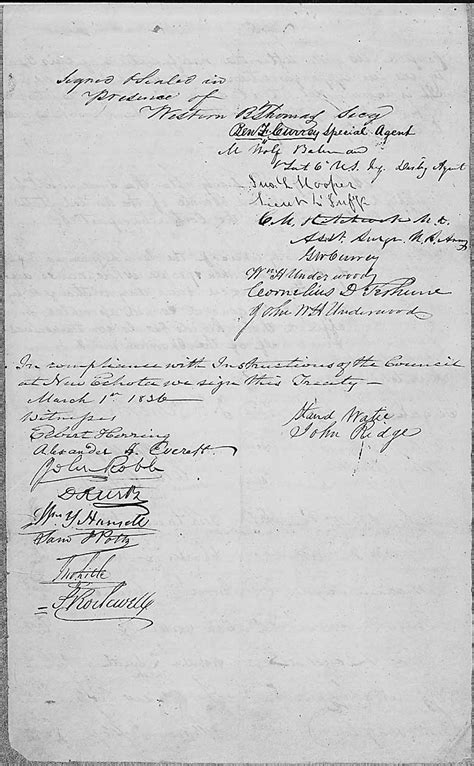 Signed & Sealed in
Presence of
Western B Thomas Secy
Ben F. Currey Special Agent
M Wolf Bateman
Lieut 6th U.S. Iny. Disbg Agent
Jno L Hooper
Lieut
C. M. Hitchcock M.D.
Asst. Surgn. U.S. Army
G W Currey
Wm H Underwood
Cornelius D. Terhune
John W H Underwood
In compliance with Instructions of the Council
at New Echota we sign this Treaty—
March 1st 1836
Witnesses
Stand Watie
Elbert Herring
John Ridge
Alexander H. Everett
John Robb
D Kurtz
Wm Y Hansell
Saml J Potts
S Rockwell